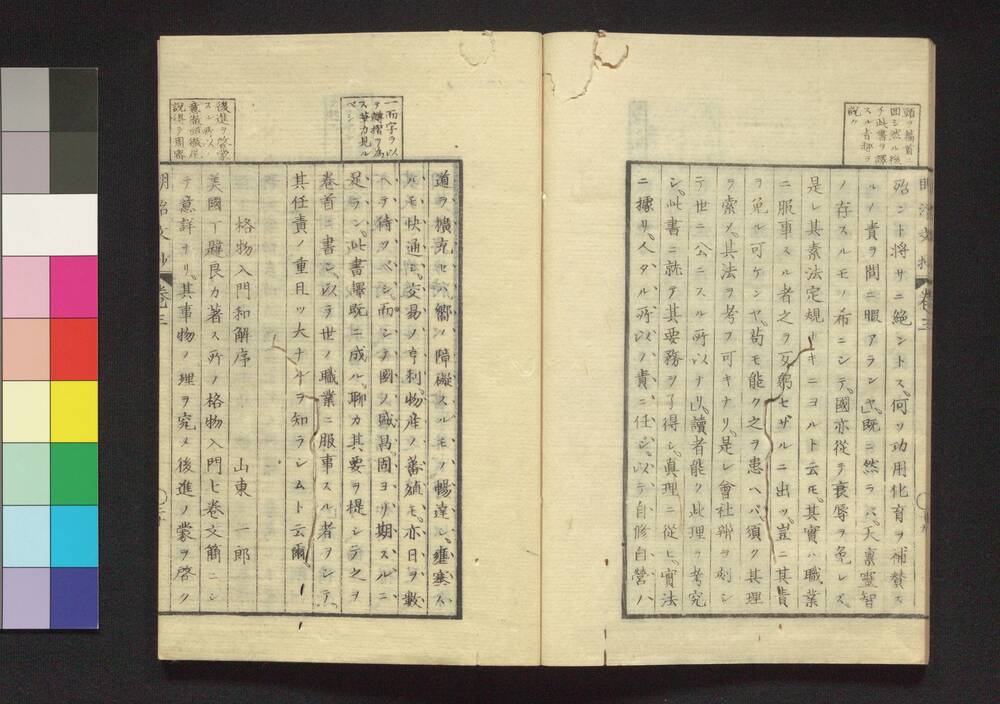 殆ント将サニ絶ントス。何ソ功用化育ヲ補賛ス
ルノ責ヲ問ニ暇アランヤ。既ニ然ラハ。天禀靈智
ノ存スルモノ布ニシテ。國亦從テ衰辱ヲ免レズ。
是レ其素法定規ナキニヨルト云モ。其實ハ職業
ニ服事スル者之ヲ反躬セザルニ出ツ。豈ニ其責
ヲ免ル可ケンヤ。苟モ能ク之ヲ患ヘバ須ク其理
ヲ索メ。其法ヲ考フ可キナリ。是レ會社辨ヲ刻シ
テ世ニ公ニスル所以ナリ。讀者能ク此理ヲ考究
シ。此書ニ就テ其要務ヲ了得シ。眞理ニ從ヒ。實法
ニ據リ。人タル所以ノ責ニ任シ。以テ自修自營ハ
明治文抄 卷三
一而字ヲ以
ヲ轉摺ヲ為
ス筆力見ル
ベシ
道ヲ擴充セハ。嚮ノ障礙スルモノ暢達シ。壅塞ス
ルモ快通シ。交易ノ亨利。物産ノ蕃殖モ。亦日ヲ數
ヘテ待ツベシ。而シテ國ノ盛昌。固ヨリ期スルニ
足ラン。此書譯既ニ成ル。聊カ其要ヲ提シテ之ヲ
卷首ニ書シ。以テ世ノ職業ニ服事スル者ヲシテ。
其任責ノ重且ッ大ナルヲ知ラシムト云爾。
後進ヲ啓蒙
スル所以ノ
格物入門和解序 山東一郎
美國丁韙良カ著ス所ノ格物入門七卷文簡ニシ
テ意詳ナリ。其事物ノ理ヲ究メ後進ノ蒙ヲ啓ク
明治文抄 卷三